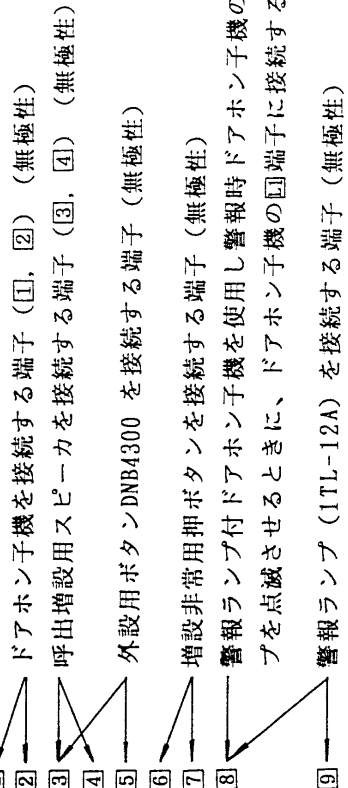 ドアホン子機を接続する端子（1, 2）（無極性）
2
呼出増設用スピーカを接続する端子（3, 4）（無極性）
3
4
外設用ボタンDNB4300 を接続する端子（無極性）
5
6
増設非常用押ボタンを接続する端子（無極性）
7
8
警報ランプ付ドアホン子機を使用し警報時ドアホン子機の
プを点滅させるときに、ドアホン子機のL1端子に接続する
9
警報ランプ（1TL-12A）を接続する端子（無極性）